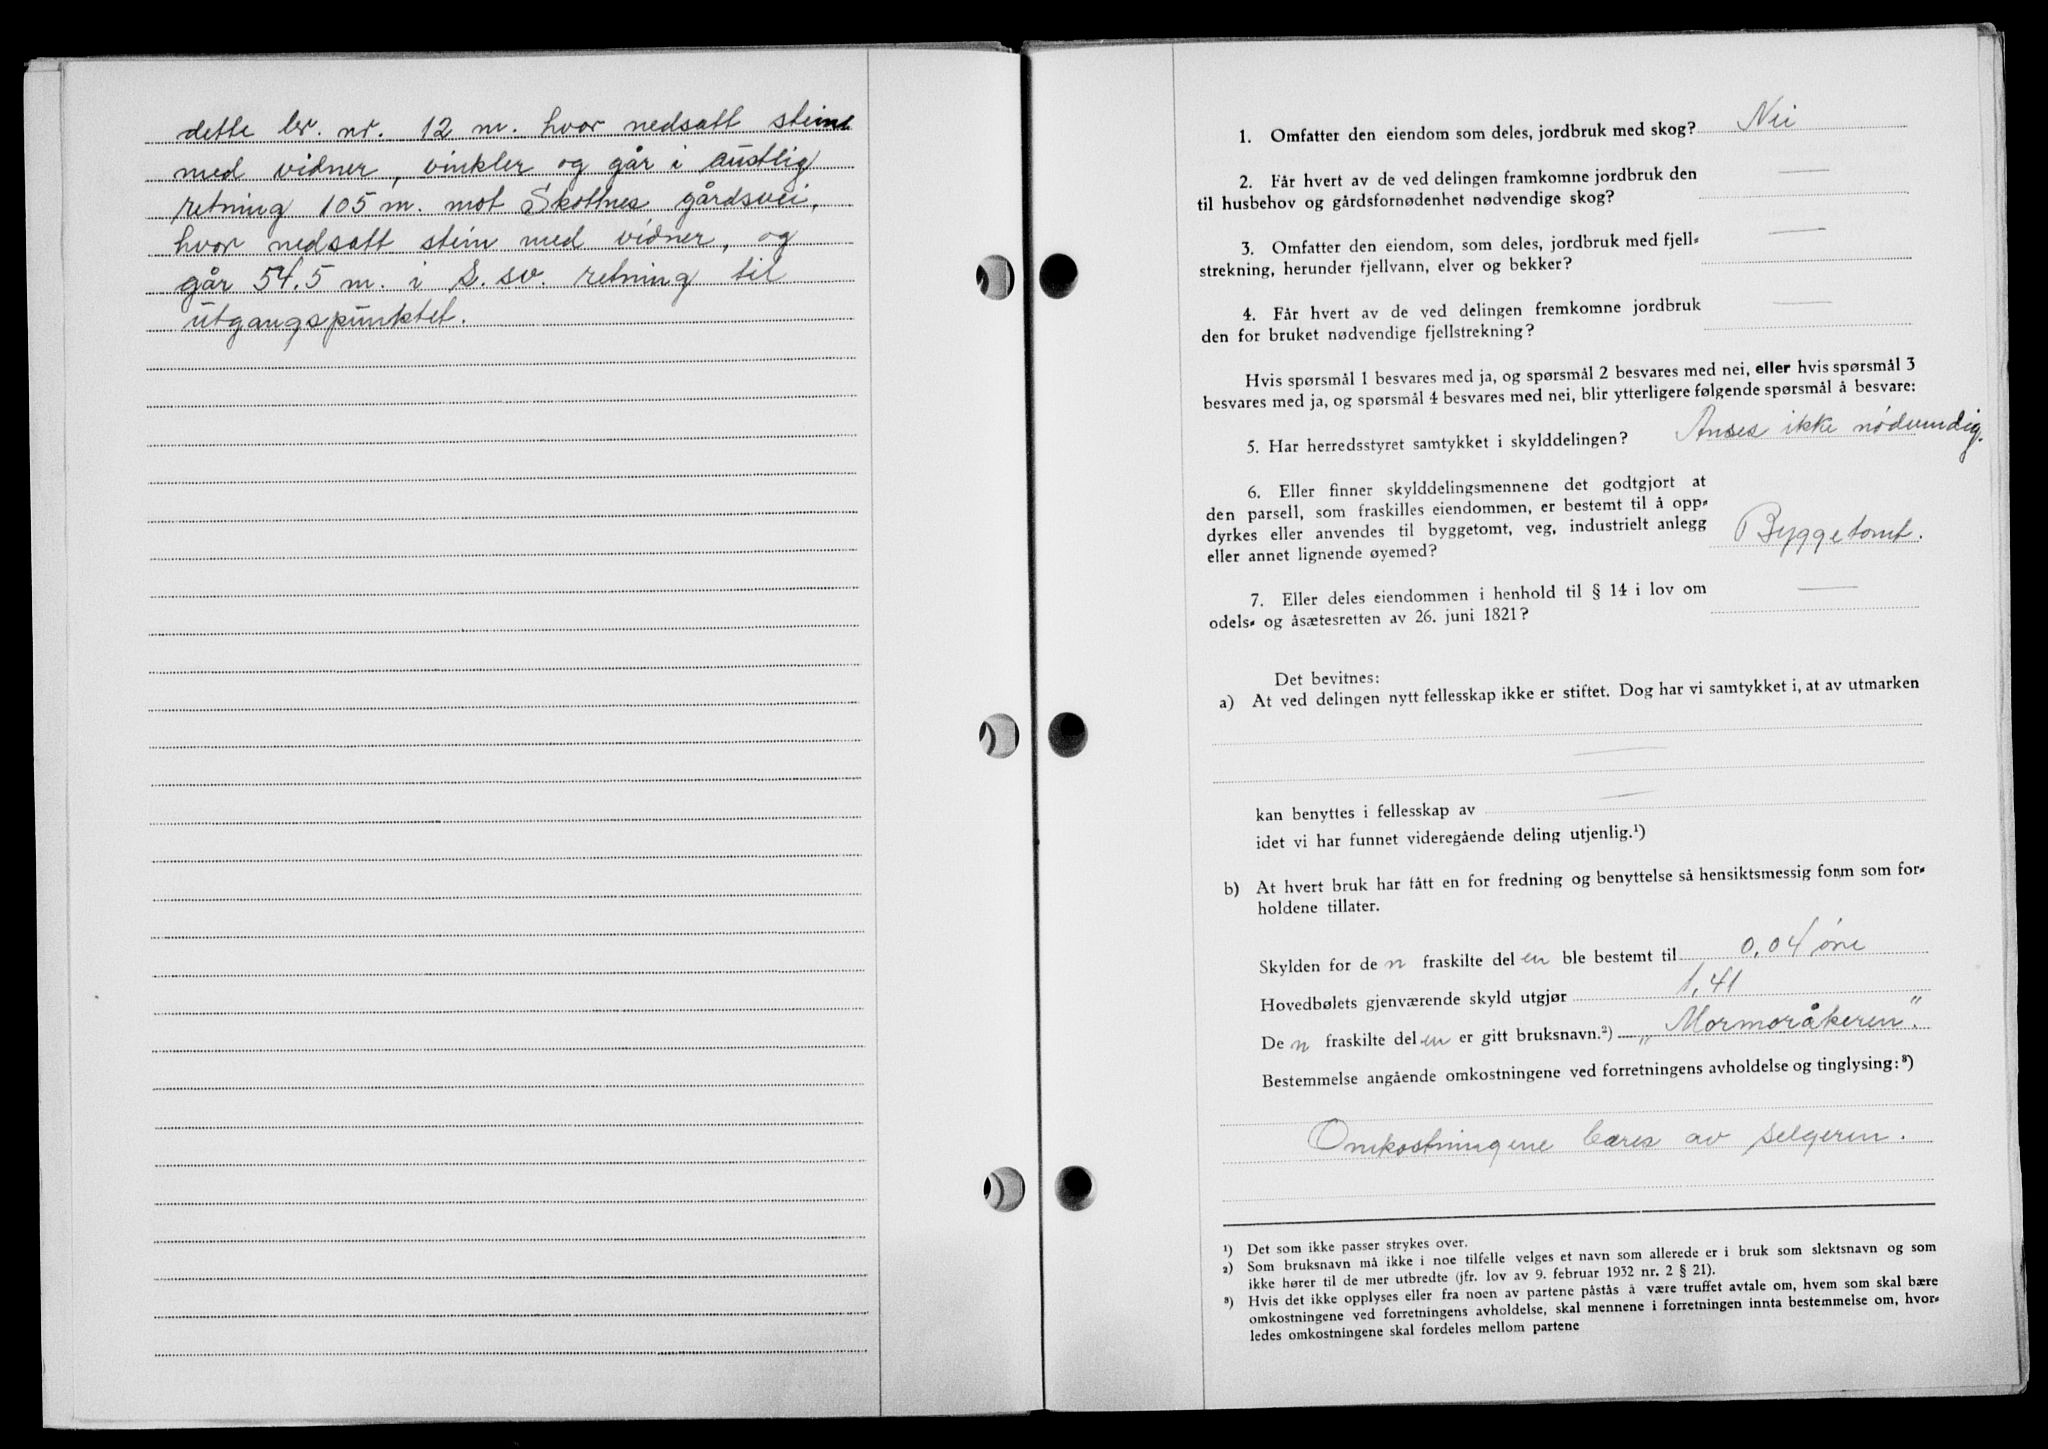 dette br. nr. 12 m. hvor nedsatt stein
med vidner, vinkler og går i austlig
retning 105 m. mot Skottnes gårdsvei,
hvor nedsatt stein med vidner, og
går 54,5 m. i S. sv. retning til
utgangspunktet.
1. Omfatter den eiendom som deles, jordbruk med skog? Nei
2. Får hvert av de ved delingen framkomne jordbruk den
til husbehov og gårdsfornødenhet nødvendige skog? —
3. Omfatter den eiendom, som deles, jordbruk med fjell-
strekning, herunder fjellvann, elver og bekker? —
4. Får hvert av de ved delingen fremkomne jordbruk
den for bruket nødvendige fjellstrekning? —
Hvis spørsmål 1 besvares med ja, og spørsmål 2 besvares med nei, eller hvis spørsmål 3
besvares med ja, og spørsmål 4 besvares med nei, blir ytterligere følgende spørsmål å besvare:
5. Har herredsstyret samtykket i skylddelingen? Anses ikke nødvendig.
6. Eller finner skylddelingsmennene det godtgjort at
den parsell, som fraskilles eiendommen, er bestemt til å opp-
dyrkes eller anvendes til byggetomt, veg, industrielt anlegg
eller annet lignende øyemed? Byggetomt.
7. Eller deles eiendommen i henhold til § 14 i lov om
odels- og åsætesretten av 26. juni 1821? —
Det bevitnes:
a) At ved delingen nytt fellesskap ikke er stiftet. Dog har vi samtykket i, at av utmarken
—
kan benyttes i fellesskap av —
idet vi har funnet videregående deling utjenlig.¹)
b) At hvert bruk har fått en for fredning og benyttelse så hensiktsmessig form som for-
holdene tillater.
Skylden for de n fraskilte del en ble bestemt til 0,04 øre
Hovedbølets gjenværende skyld utgjør 1,41
De n fraskilte del en er gitt bruksnavn.²) „Mormoråkeren".
Bestemmelse angående omkostningene ved forretningens avholdelse og tinglysing:³)
Omkostningene bæres av selgeren.
¹) Det som ikke passer strykes over.
²) Som bruksnavn må ikke i noe tilfelle velges et navn som allerede er i bruk som slektsnavn og som
ikke hører til de mer utbredte (jfr. lov av 9. februar 1932 nr. 2 § 21).
³) Hvis det ikke opplyses eller fra noen av partene påstås å være truffet avtale om, hvem som skal bære
omkostningene ved forretningens avholdelse, skal mennene i forretningen innta bestemmelse om, hvor-
ledes omkostningene skal fordeles mellom partene